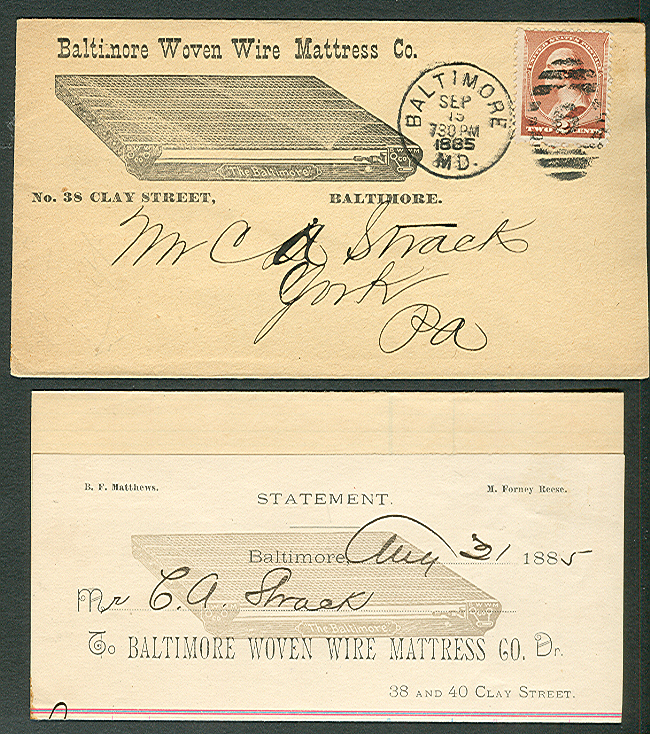 Baltimore Woven Wire Mattress Co.
BALTIMORE
SEP
15
730 PM
1885
MD.
TWO CENTS
"The Baltimore"
No. 38 CLAY STREET, BALTIMORE.
Mr C A Strack
York
Pa
B. F. Matthews. M. Forney Reese.
STATEMENT.
Baltimore, Aug 31 1885
Mr C. A. Strack
"The Baltimore"
To BALTIMORE WOVEN WIRE MATTRESS CO. Dr.
38 AND 40 CLAY STREET.